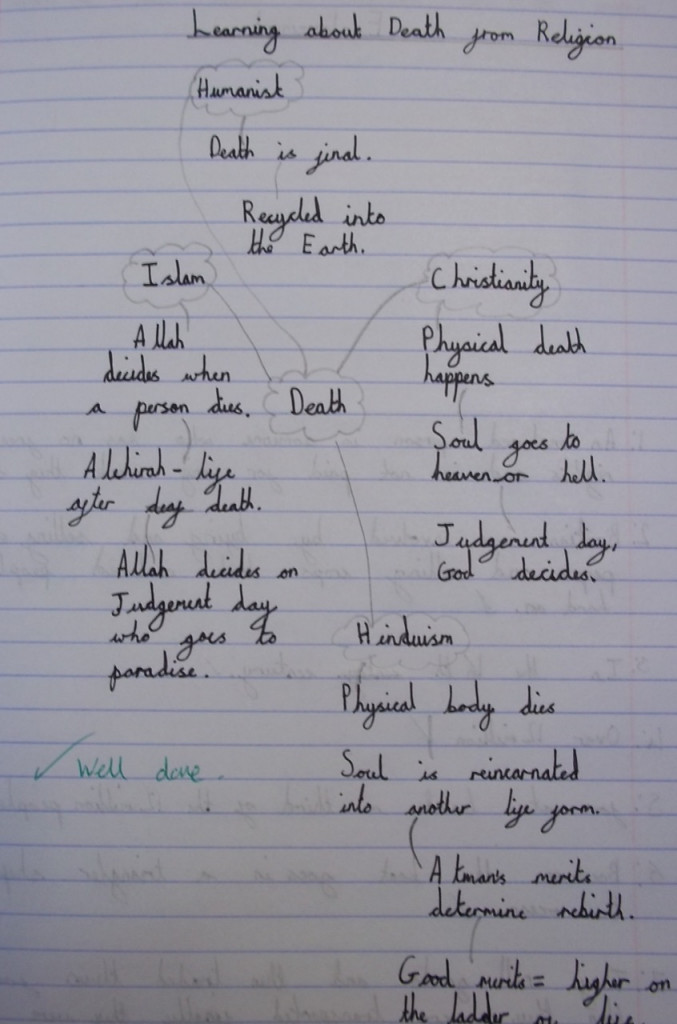 Learning about Death from Religion
Humanist
Death is final.
Recycled into
the Earth.
Islam
Allah
decides when
a person dies.
Akhirah - life
after death.
Allah decides on
Judgement day
who goes to
paradise.
Christianity
Physical death
happens
Soul goes to
heaven or hell.
Judgement day,
God decides.
Death
Hinduism
Physical body dies
Soul is reincarnated
into another life form.
Atman's merits
determine rebirth.
Good merits = higher on
the ladder of life
Well done.